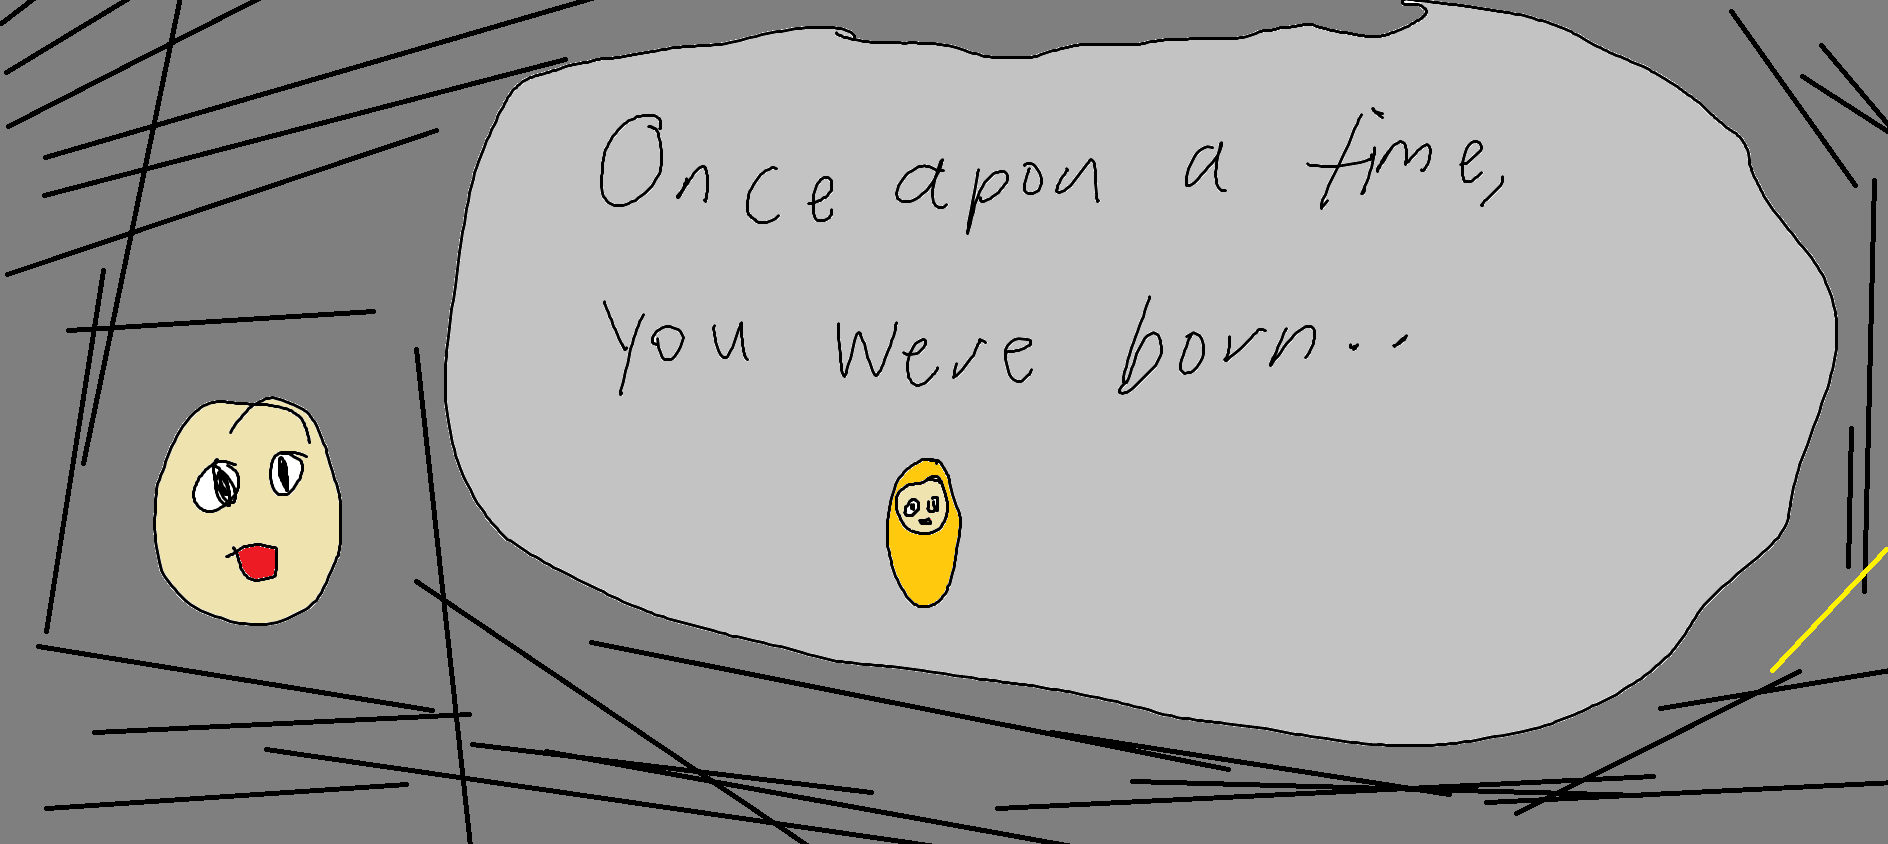 Once apon a time,
you were born..